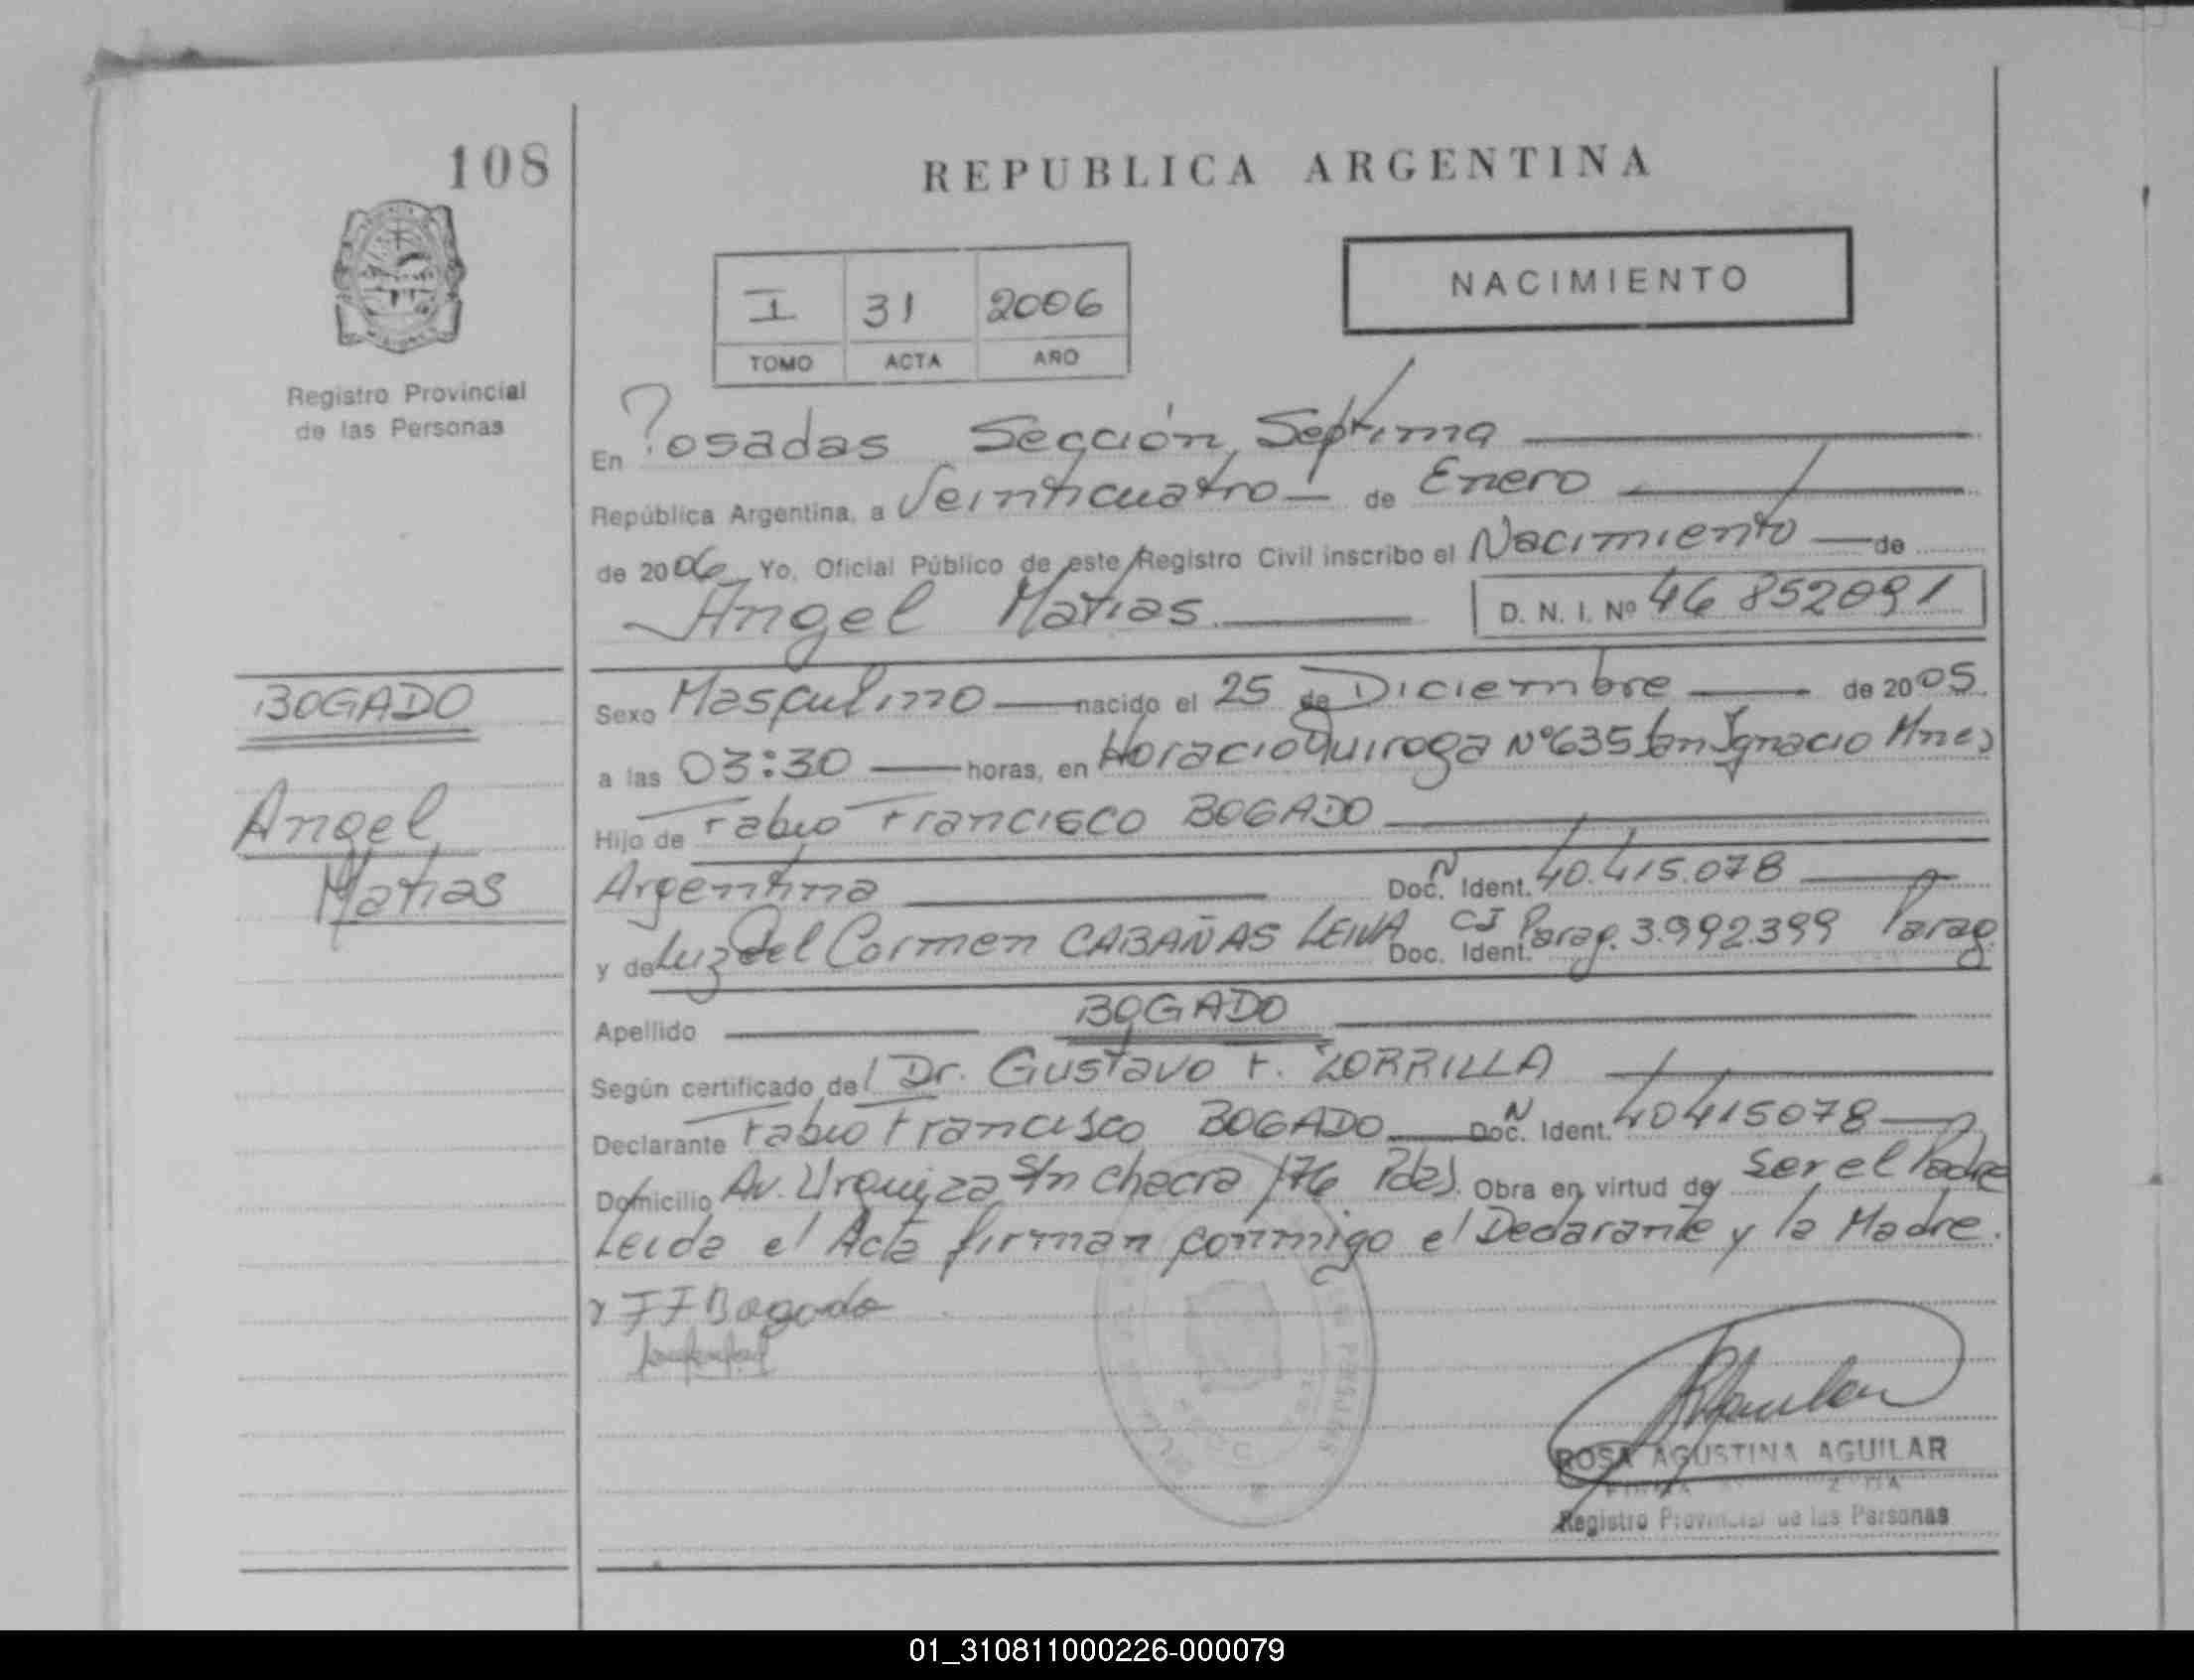 108
REPUBLICA ARGENTINA
NACIMIENTO
I 31 2006
TOMO ACTA AÑO
Registro Provincial
de las Personas
En Posadas Sección Septima
República Argentina, a Veinticuatro de Enero
de 2006 Yo, Oficial Público de este Registro Civil inscribo el Nacimiento de
Angel Matias D. N. I. Nº 46 852091
BOGADO
Angel
Matias
Sexo Masculino nacido el 25 de Diciembre de 2005
a las 03:30 horas, en Horacio Quiroga Nº 635 San Ignacio Mnes
Hijo de Fabio Francisco BOGADO
Argentina Doc. N Ident. 40.415.078
y de Luz del Carmen CABAÑAS LEIVA Doc. Ident. CI Parag. 3.992.399 Parag
Apellido BOGADO
Según certificado del Dr. Gustavo F. ZORRILLA
Declarante Fabio Francisco BOGADO Doc. N Ident. 40415078
Domicilio Av. Urquiza S/n chacra 176 Pdas. Obra en virtud de Ser el Padre
Leida el Acta firman conmigo el Declarante y la Madre.
FF Bogado
ROSA AGUSTINA AGUILAR
Registro Provincial de las Personas
01_310811000226-000079